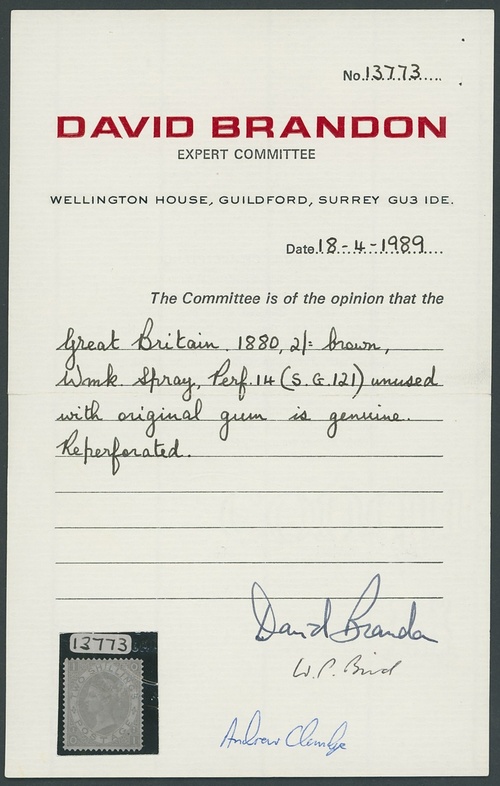 No.13773....
DAVID BRANDON
EXPERT COMMITTEE
WELLINGTON HOUSE, GUILDFORD, SURREY GU3 IDE.
Date.18-4-1989....
The Committee is of the opinion that the
Great Britain. 1880, 2/= brown,
Wmk. Spray, Perf. 14 (S.G.121) unused
with original gum is genuine.
Reperforated.
David Brandon
W.P. Bird
Andrew
13773
TWO SHILLINGS
POSTAGE